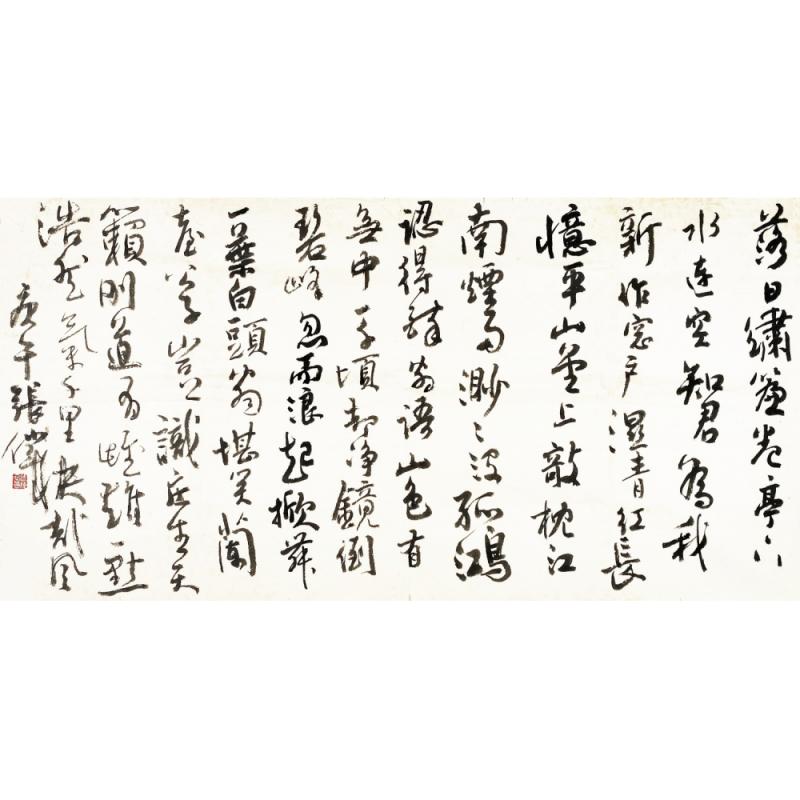 落日繡簾卷亭下
水連空知君為我
新作窗戶濕青紅長
憶平山堂上敧枕江
南煙雨渺〻沒孤鴻
認得醉翁語山色有
無中一千頃都净鏡倒
碧峰忽而浪起掀舞
一葉白頭翁堪笑蘭
臺公子豈識莊生天
籟剛道有雌雄一點
浩然氣千里快哉風
庚午張